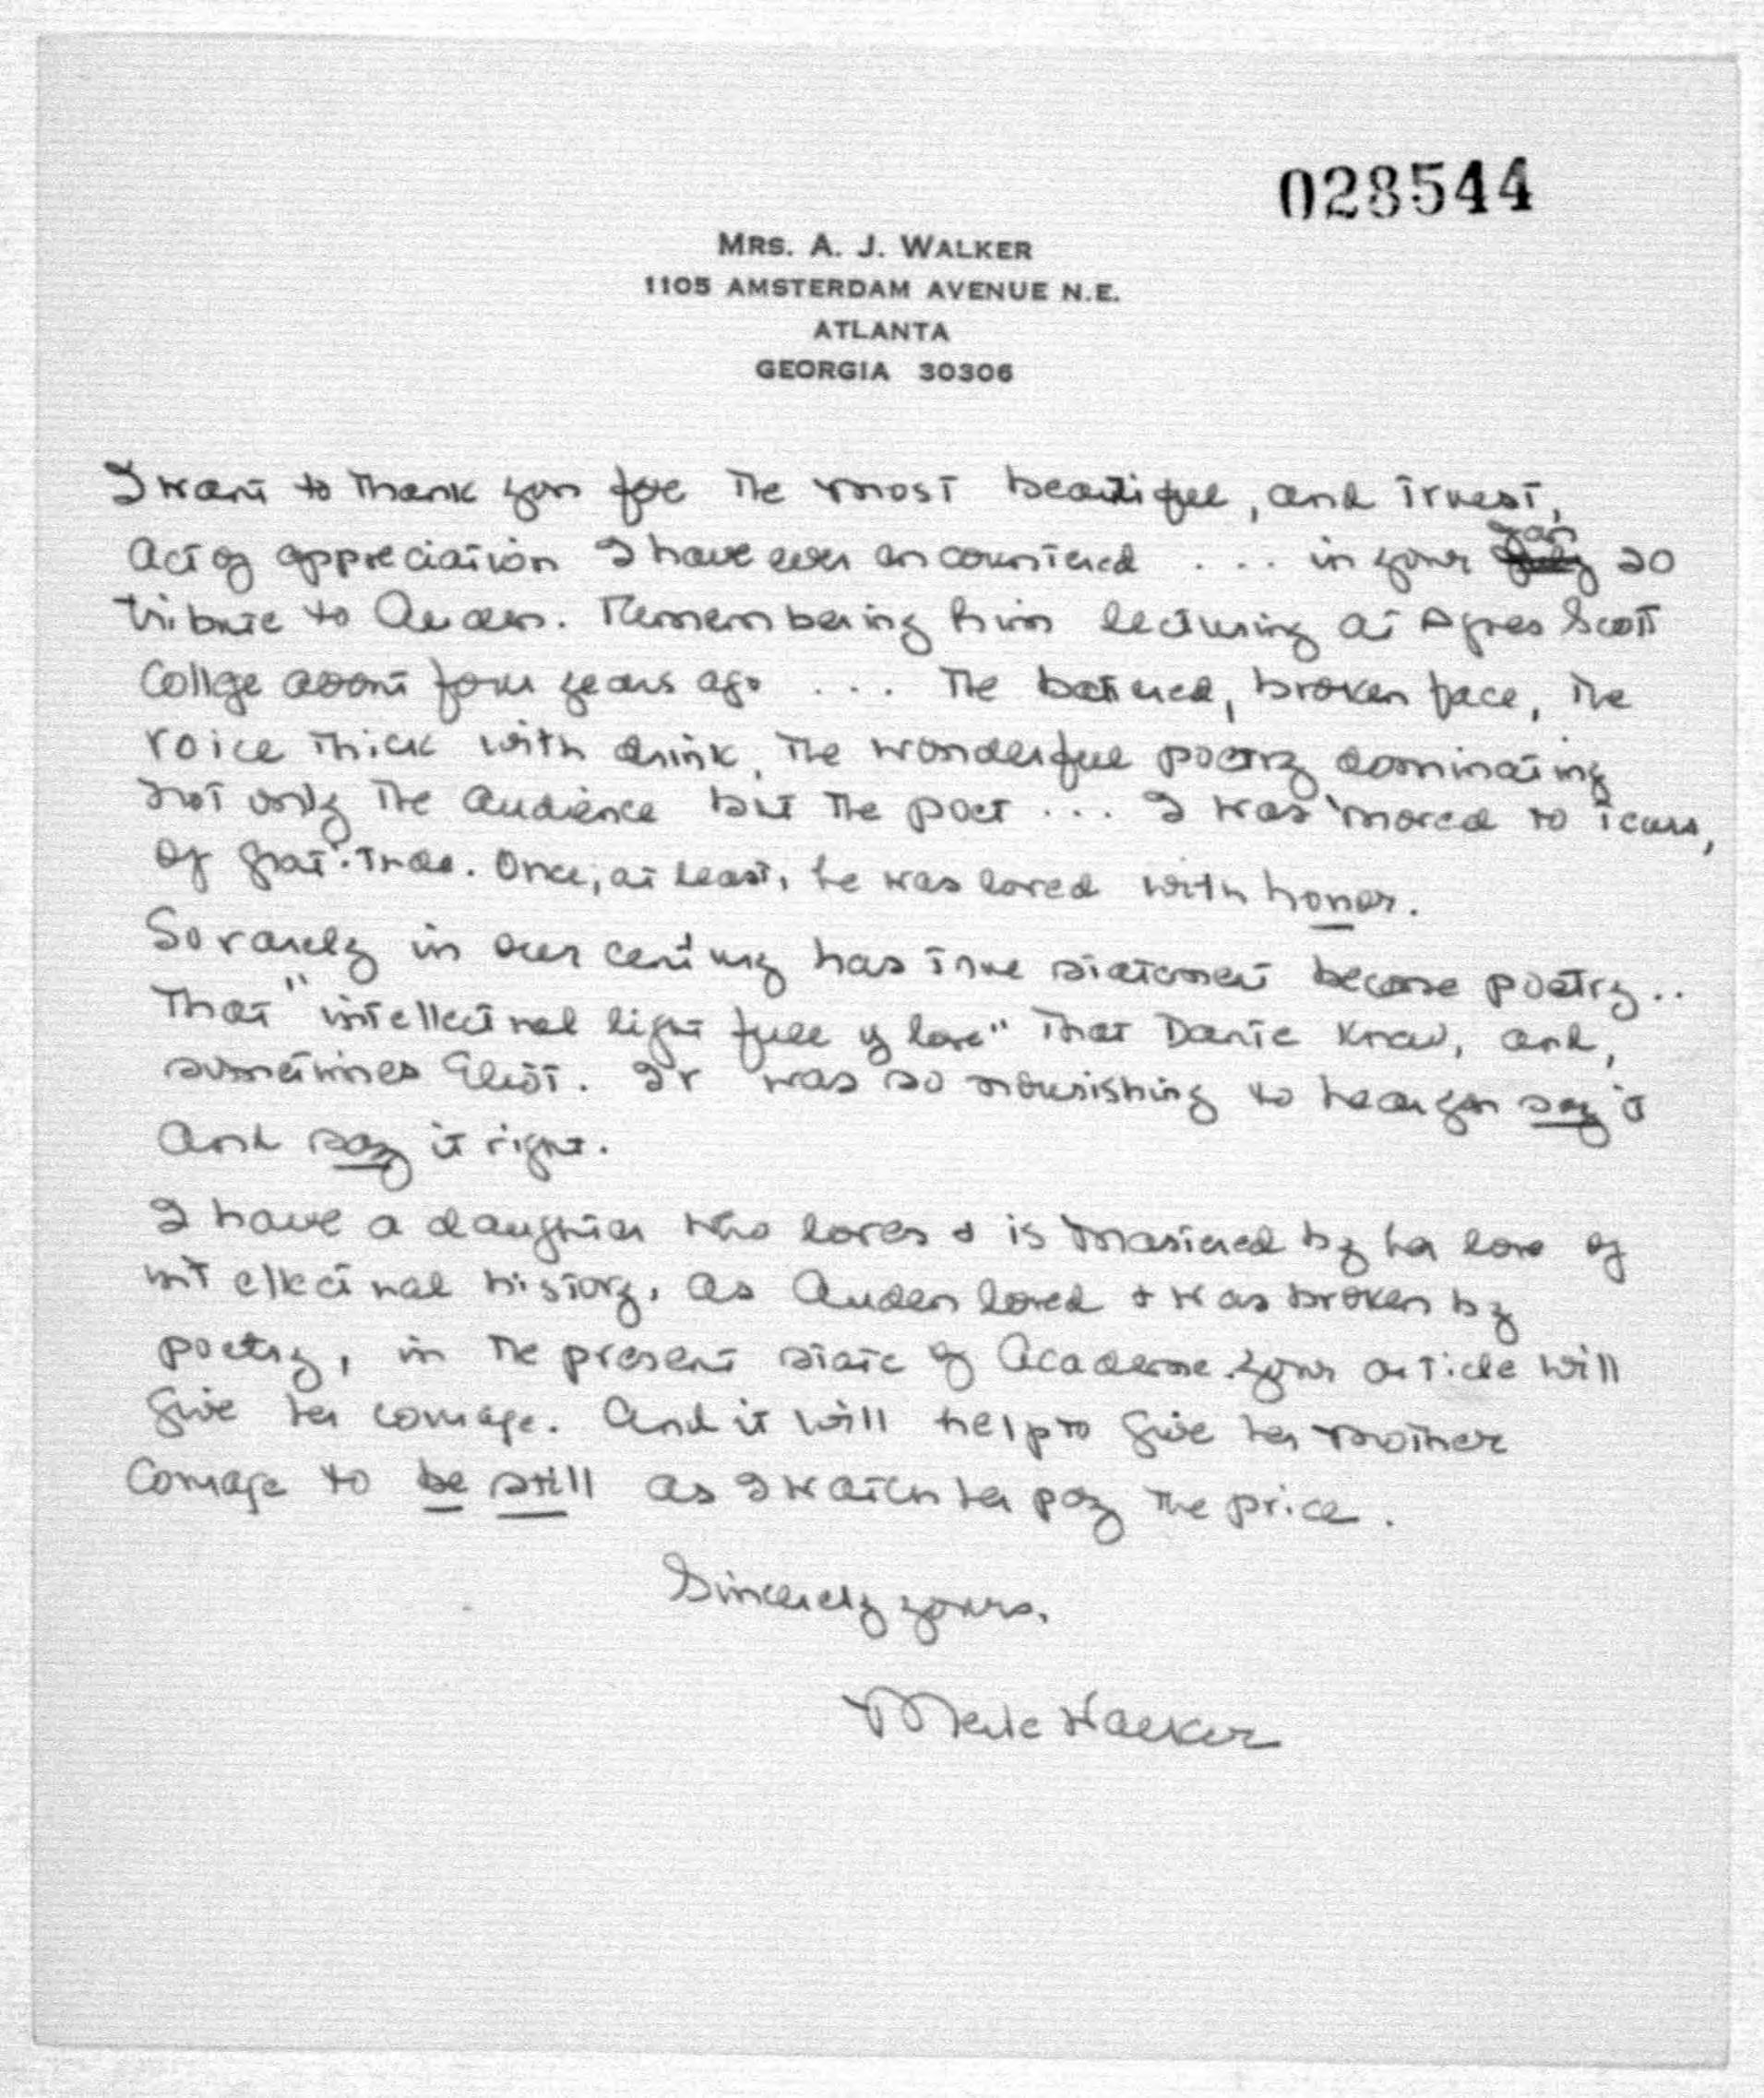 028544
MRS. A. J. WALKER
1105 AMSTERDAM AVENUE N.E.
ATLANTA
GEORGIA 30306
I want to thank you for the most beautiful, and truest,
act of appreciation I have ever encountered . . . in your Jan 20
tribute to Auden. Remembering him lecturing at Agnes Scott
Collge about four years ago . . . the battered, broken face, the
voice thick with drink, the wonderful poetry dominating
not only the audience but the poet . . . I was moved to tears,
of gratitude. Once, at least, he was loved with honor.
So rarely in our century has true statement become poetry..
That "intellectual light full of love" that Dante knew, and,
sometimes Eliot. It was so nourishing to hear you say it
and say it right.
I have a daughter who loves & is mastered by her love of
intellectual history, as Auden loved & was broken by
poetry, in the present state of Academe. Your article will
give her courage. And it will help to give her mother
courage to be still as I watch her pay the price.
Sincerely yours,
Merle Walker